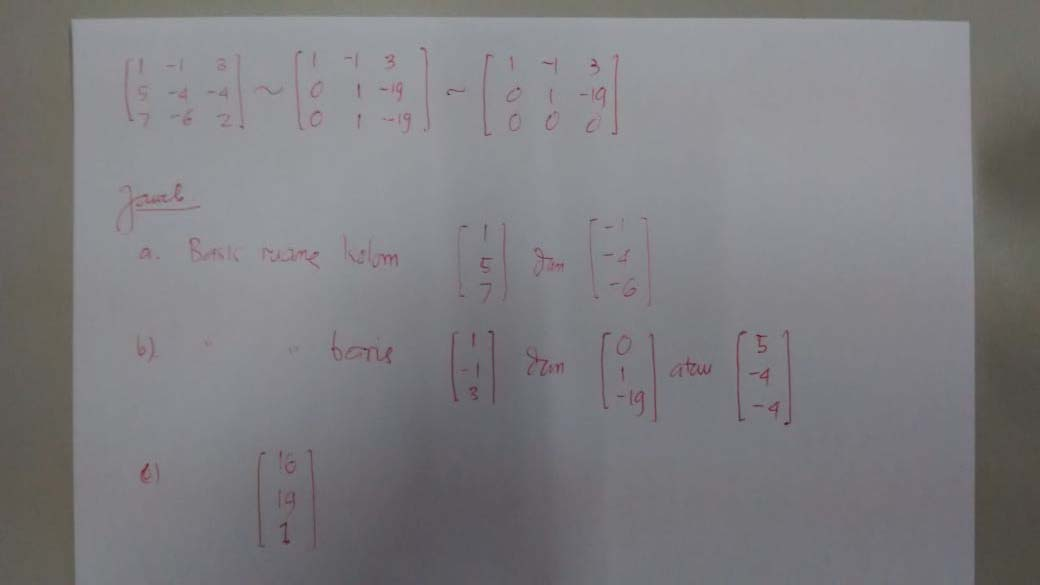 [1 -1 3; 5 -4 -4; 7 -6 2] ~ [1 -1 3; 0 1 -19; 0 1 -19] ~ [1 -1 3; 0 1 -19; 0 0 0]
Jawab
a. Basis ruang kolom [1; 5; 7] dan [-1; -4; -6]
b) " " baris [1; -1; 3] dan [0; 1; -19] atau [5; -4; -4]
c) [16; 19; 1]